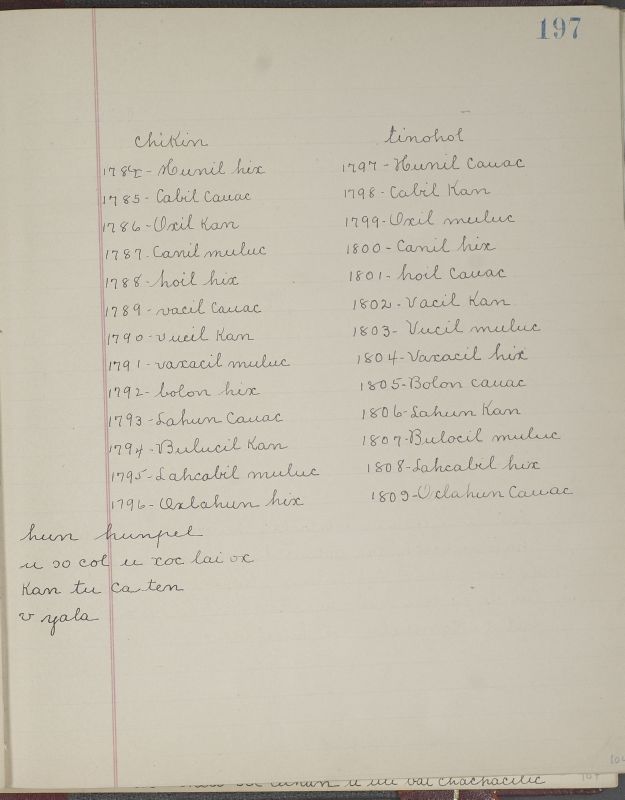 197
chikin
1784 - Hunil hix
1785 - Cabil Cauac
1786 - Oxil Kan
1787 - Canil muluc
1788 - hoil hix
1789 - vacil Cauac
1790 - vucil Kan
1791 - vaxacil muluc
1792 - bolon hix
1793 - Lahun Cauac
1794 - Bulucil Kan
1795 - Lahcabil muluc
1796 - Oxlahun hix
tinohol
1797 - Hunil Cauac
1798 - Cabil Kan
1799 - Oxil muluc
1800 - Canil hix
1801 - hoil Cauac
1802 - Vacil Kan
1803 - Vucil muluc
1804 - Vaxacil hix
1805 - Bolon cauac
1806 - Lahun Kan
1807 - Bulocil muluc
1808 - Lahcabil hix
1809 - Oxlahun Cauac
hun hunpel
u ɔo col u xoc lai ox
Kan tu ca ten
v yala
u vai chacpacilic